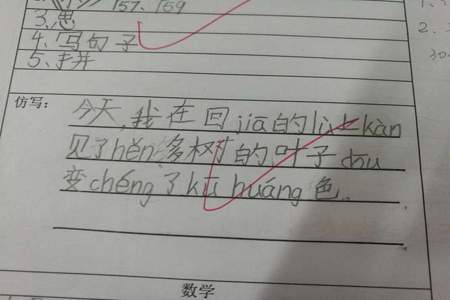 157、159
3、思
4、写句子
5、拼
仿写：
今天,我在回jiā的lù上kàn
见了hěn多树的叶子dōu
变chéng了kū huáng色。
数学
1、
2、
30